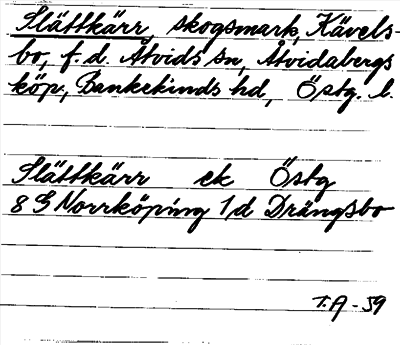 Slättkärr, skogsmark, Kävels-
bo, f. d. Åtvids sn, Åtvidabergs
köp., Bankekinds hd, Östg. l.
Slättkärr ek Östg
8 G Norrköping 1/d Drängsbo
T.A - 59